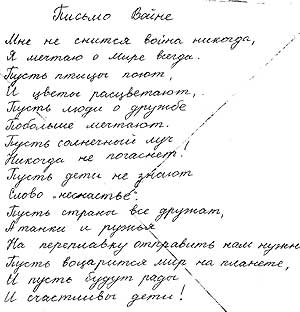 Письмо Войне
Мне не снится война никогда,
Я мечтаю о мире всегда.
Пусть птицы поют,
И цветы расцветают,
Пусть люди о дружбе
Побольше мечтают.
Пусть солнечный луч
Никогда не погаснет!
Пусть дети не знают
Слово „несчастье".
Пусть страны все дружат,
А танки и ружья
На переплавку отправить нам нужно
Пусть воцарится мир на планете,
И пусть будут рады
И счастливы дети!